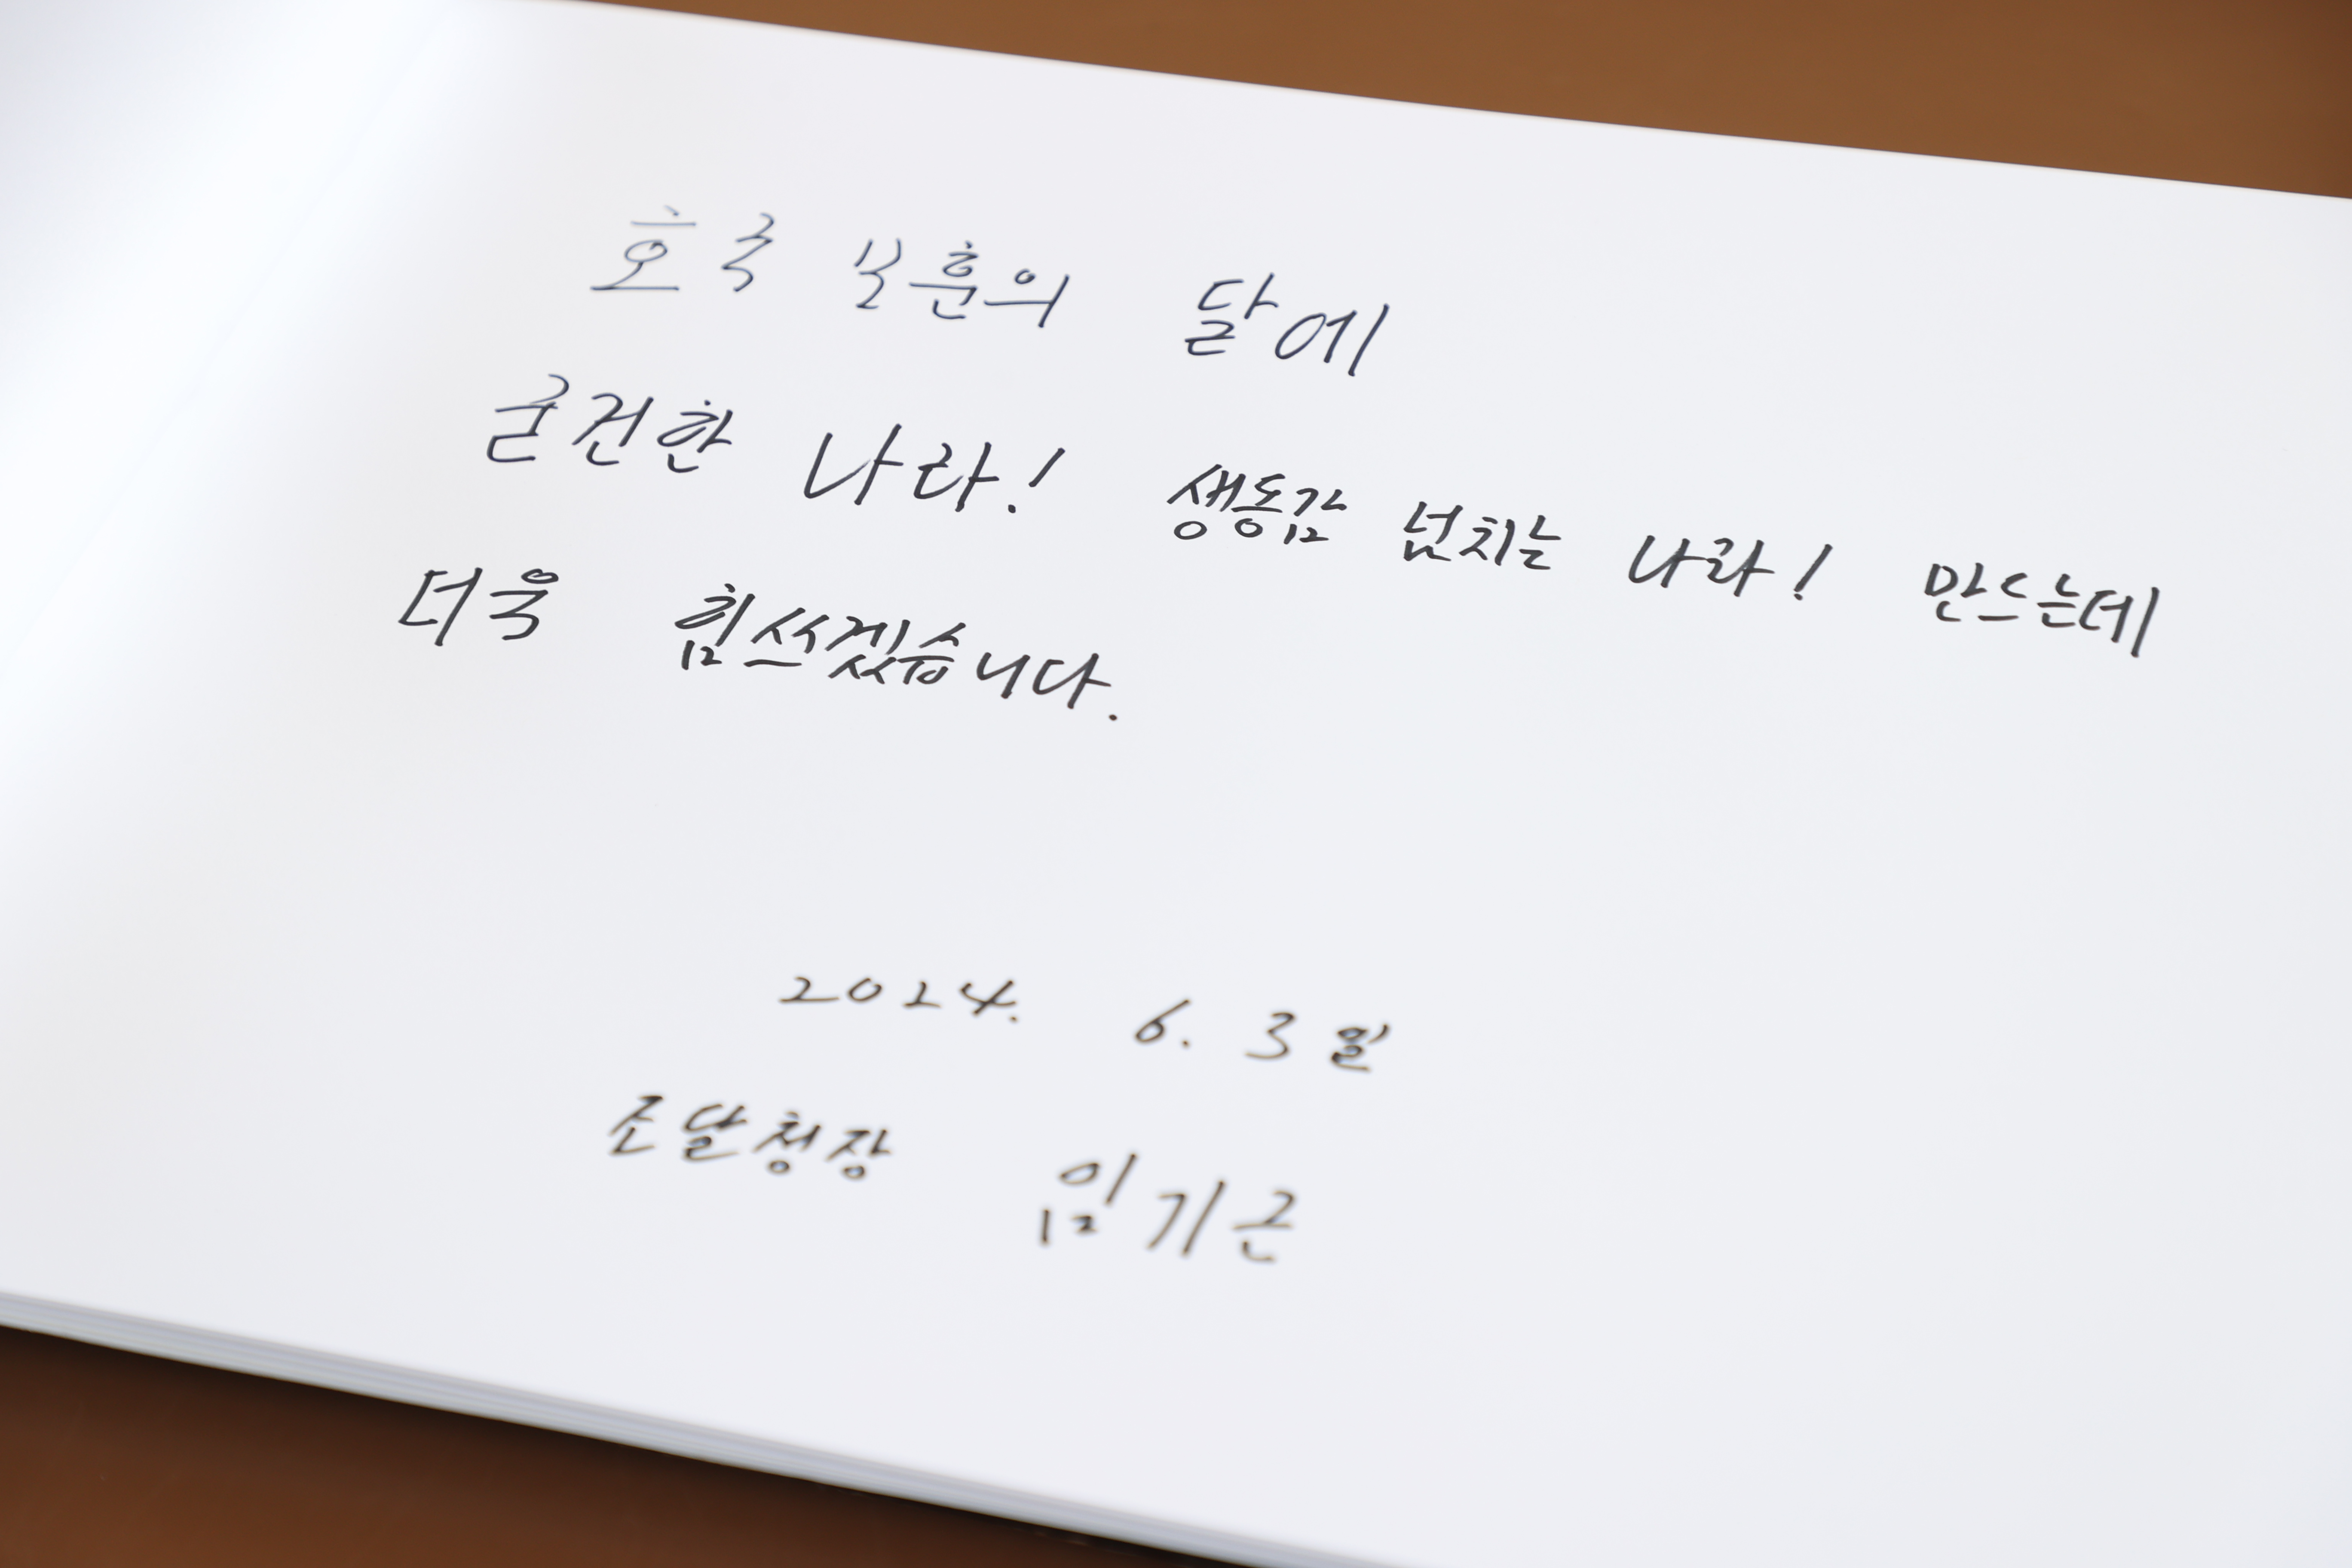 호국 보훈의 달에
굳건한 나라! 생동감 넘치는 나라! 만드는데
더욱 힘쓰겠습니다.
2024. 6. 3일
조달청장 임기근